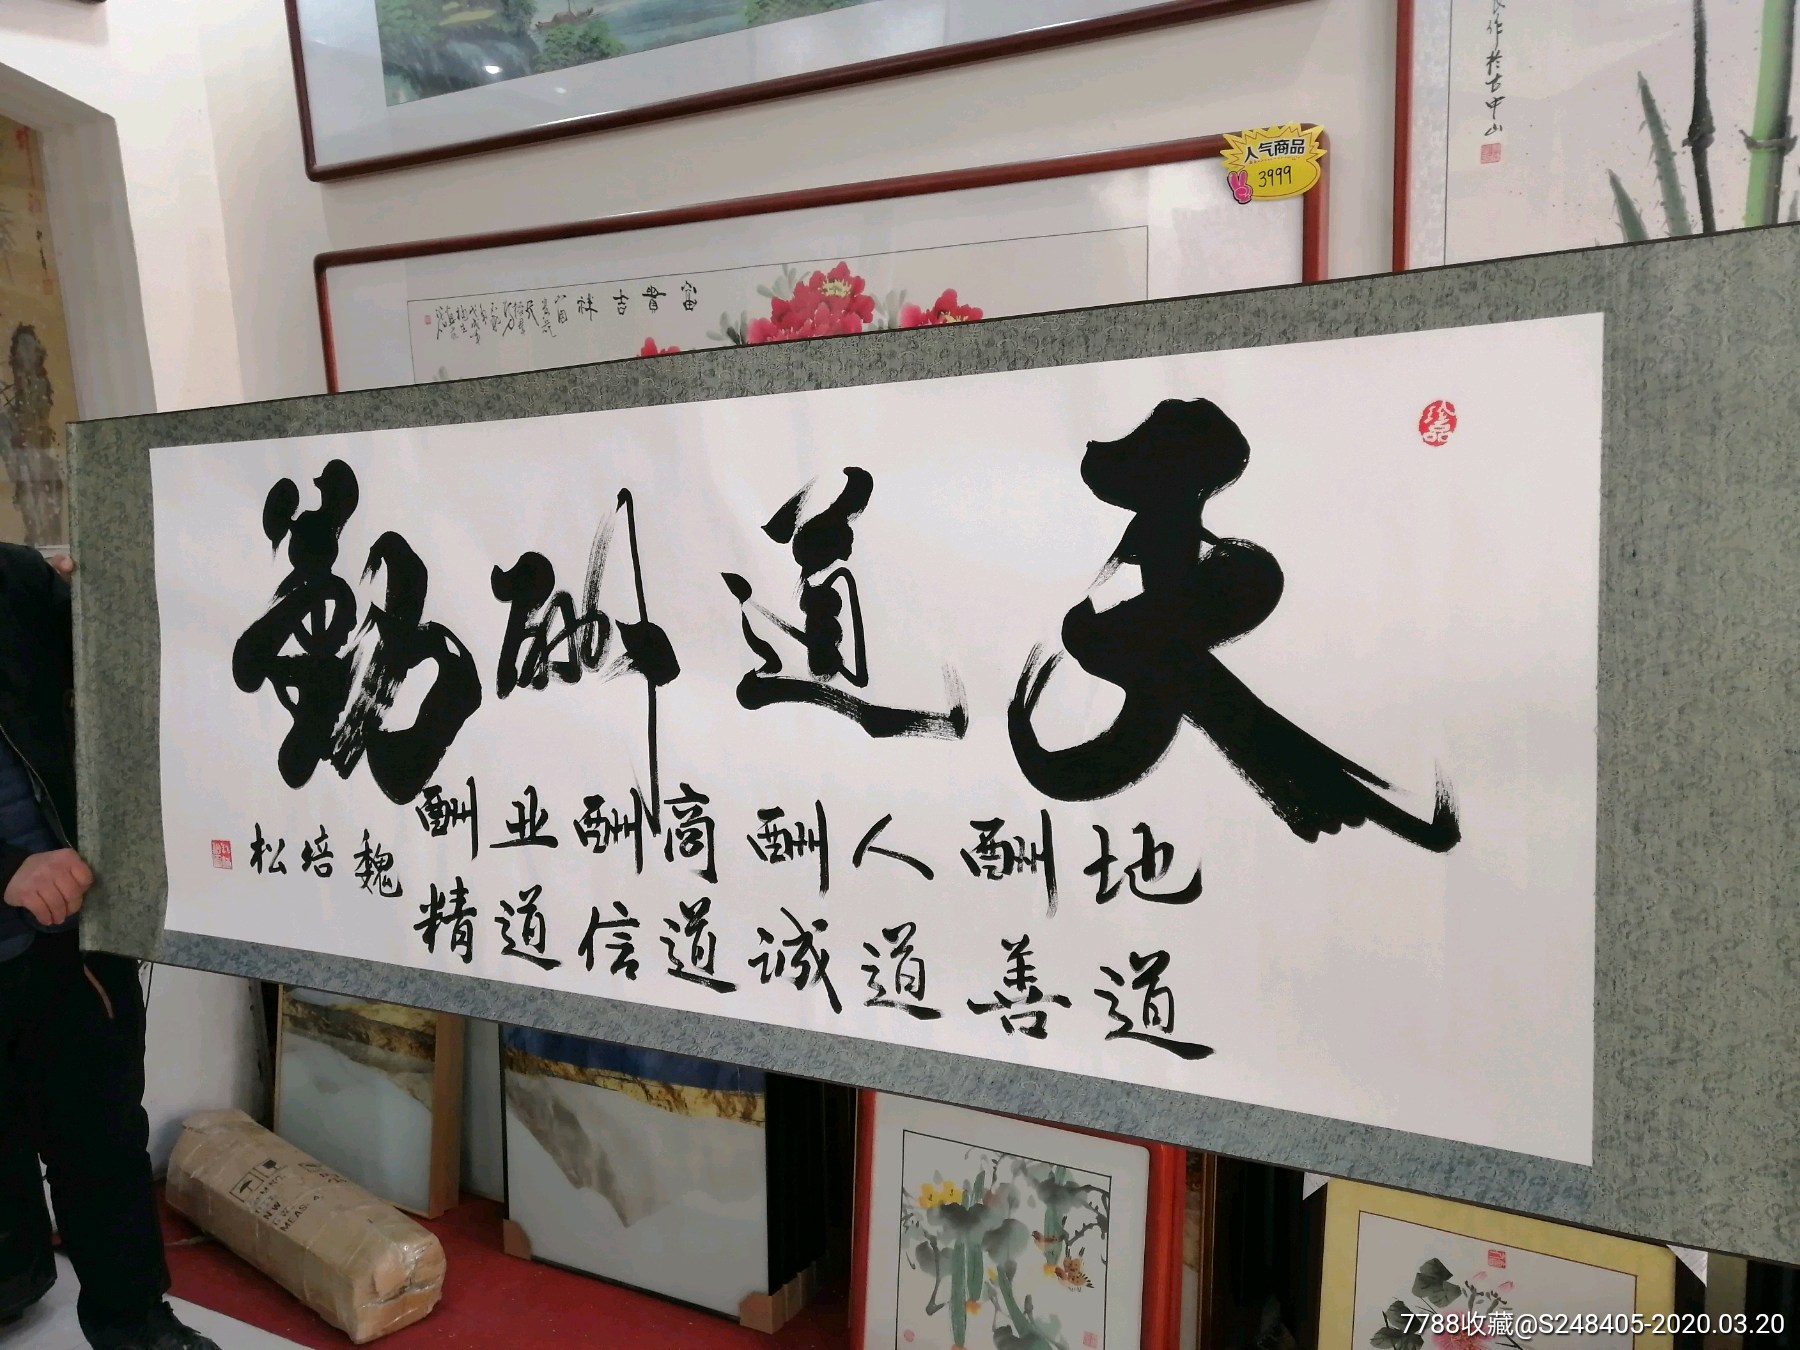 人气商品
3999
富贵吉祥
作於古中山
珍品
天道酬勤
地道酬善人道酬诚商道酬信业道酬精
魏培松
7788收藏@S248405-2020.03.20